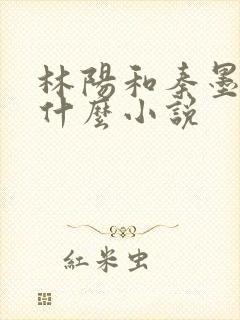 林陽和秦墨
什麼小說
紅米虫